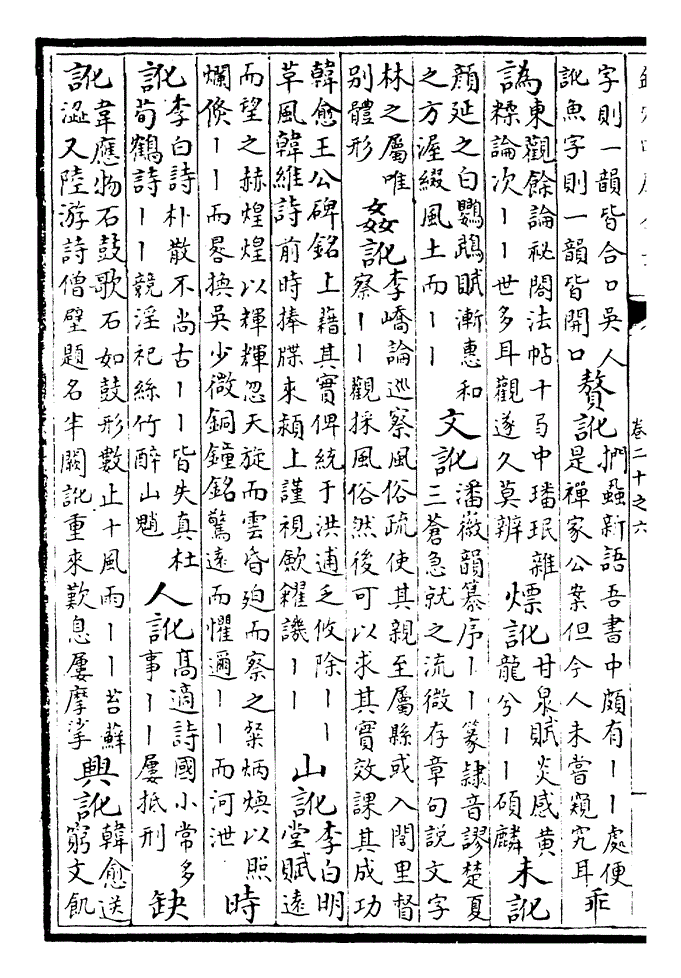 卷二十之六
字則一韻皆合口吳人
訛魚字則一韻皆開口
贅訛
捫蝨新語吾書中頗有丨丨處便
是禪家公案但今人未嘗窺究耳
乖
譌
東觀餘論祕閣法帖十弓中璠珉雜
糅論次丨丨世多耳觀遂久莫辨
熛訛
甘泉賦炎感黃
龍兮丨丨碩麟
未訛
顏延之白鸚鵡賦漸惠和
之方渥綴風土而丨丨
文訛
潘薇韻纂序丨丨篆隸音謬楚夏
三蒼急就之流微存章句說文字
林之屬唯
別體形
姦訛
李嶠論巡察風俗疏使其親至屬縣或入閭里督
察丨丨觀採風俗然後可以求其實效課其成功
韓愈王公碑銘上藉其實俾統于洪逋乏攸除丨丨
草風韓維詩前時捧牒來潁上謹視飲糴譏丨丨
山訛
李白明
堂賦遠
而望之赫煌煌以輝輝忽天旋而雲昏迫而察之粲炳煥以照
爛倏丨丨而晷換吳少微銅鐘銘驚遠而懼邇丨丨而河泄
時
訛
李白詩朴散不尚古丨丨皆失真杜
荀鶴詩丨丨競淫祀絲竹醉山魈
人訛
高適詩國小常多
事丨丨屢抵刑
缺
訛
韋應物石鼓歌石如鼓形數止十風雨丨丨苔蘚
澁又陸游詩僧壁題名半闕訛重來歎息屢摩挲
興訛
韓愈送
窮文飢